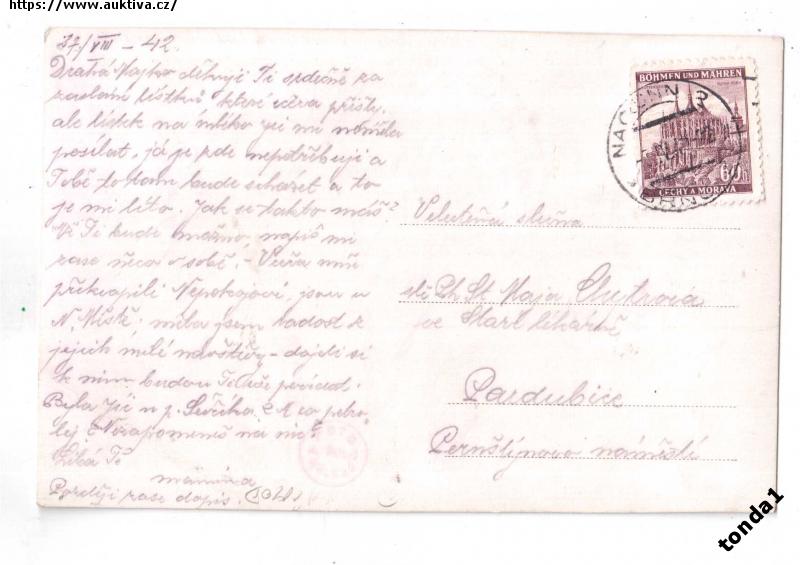 https://www.auktiva.cz/
27/VIII – 42.
Drahá Majko děkuji Ti srdečně za
zaslání lístků které včera přišly,
ale lístek na mléko jsi mi neměla
posílat, já je zde nepotřebuji a
Tobě to tam bude scházet a to
je mi líto. Jak se takto máš?
Ti bude možno, napiš mi
zase něco o sobě. – Včera mne
překvapili Nepokojovi, jsou u
N. Městě, měla jsem radost z
jejich milé návštěvy – dojdi si
k nim, budou Ti vše povídat.
Byla jsi u p. A co petro-
lej? Nezapomeneš na mě?
Líbá Tě
maminka
Později zase dopis.
BÖHMEN UND MÄHREN
60
ČECHY A MORAVA
BRNO
Velectěná slečna
sl. Ph. St. Maja
ve Staré lékárně
Pardubice
Pernštýnovo náměstí
tonda1